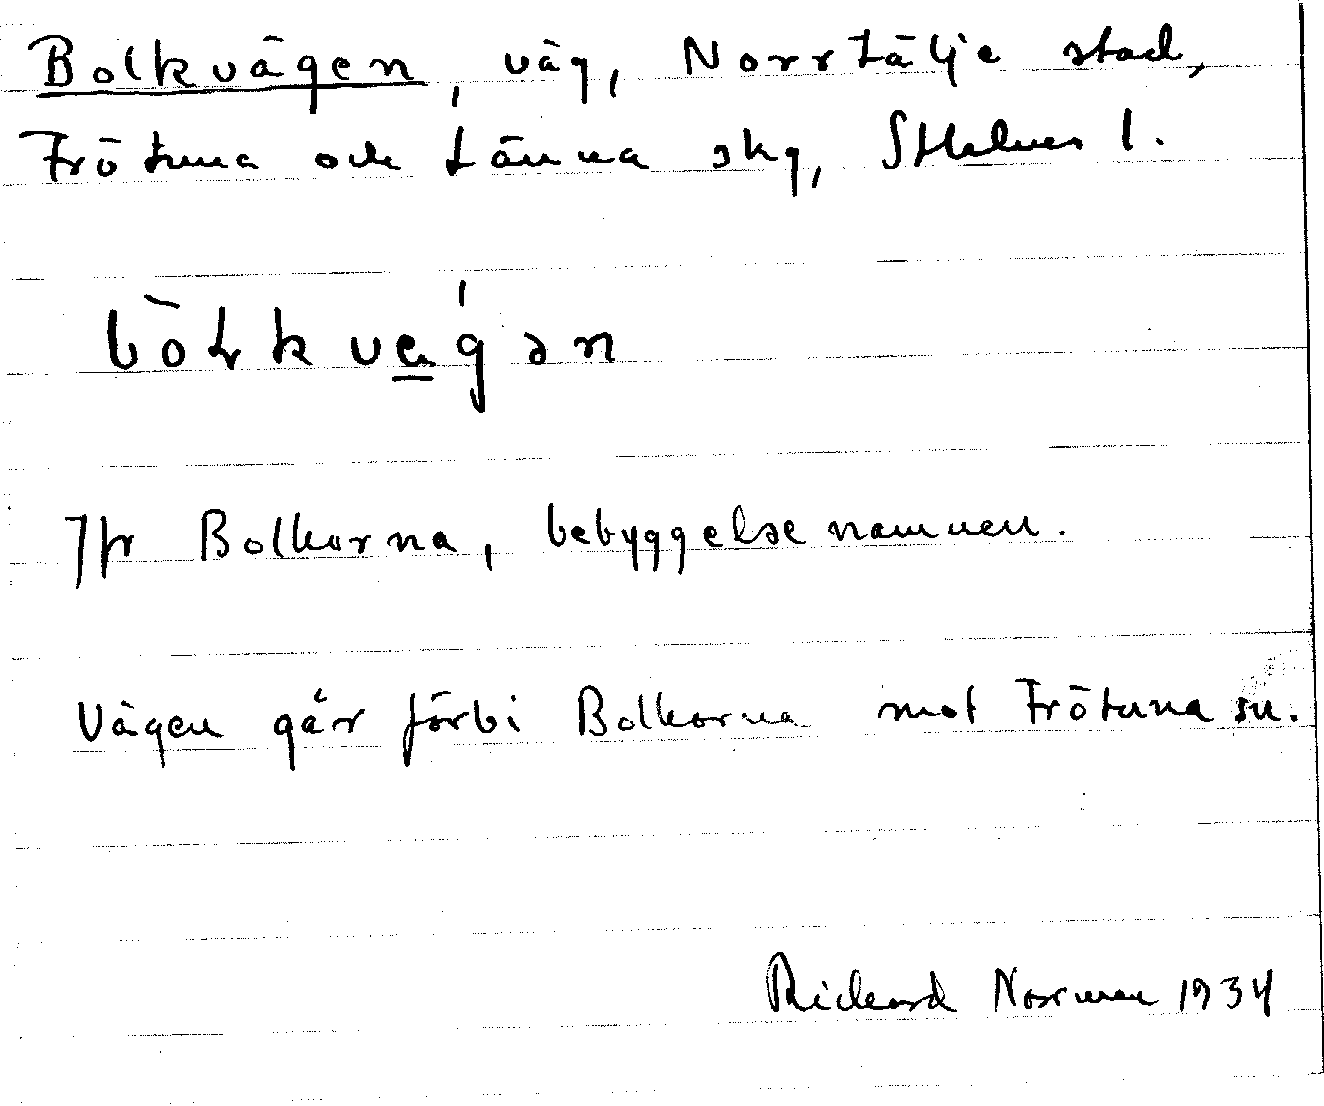 Bolkvägen, väg, Norrtälje stad,
Frötuna och Länna skg, Sthlms l.
Jfr Bolkorna, bebyggelsenamnen.
Vägen går förbi Bolkorna mot Frötuna sn.
Rickard Norman 1934